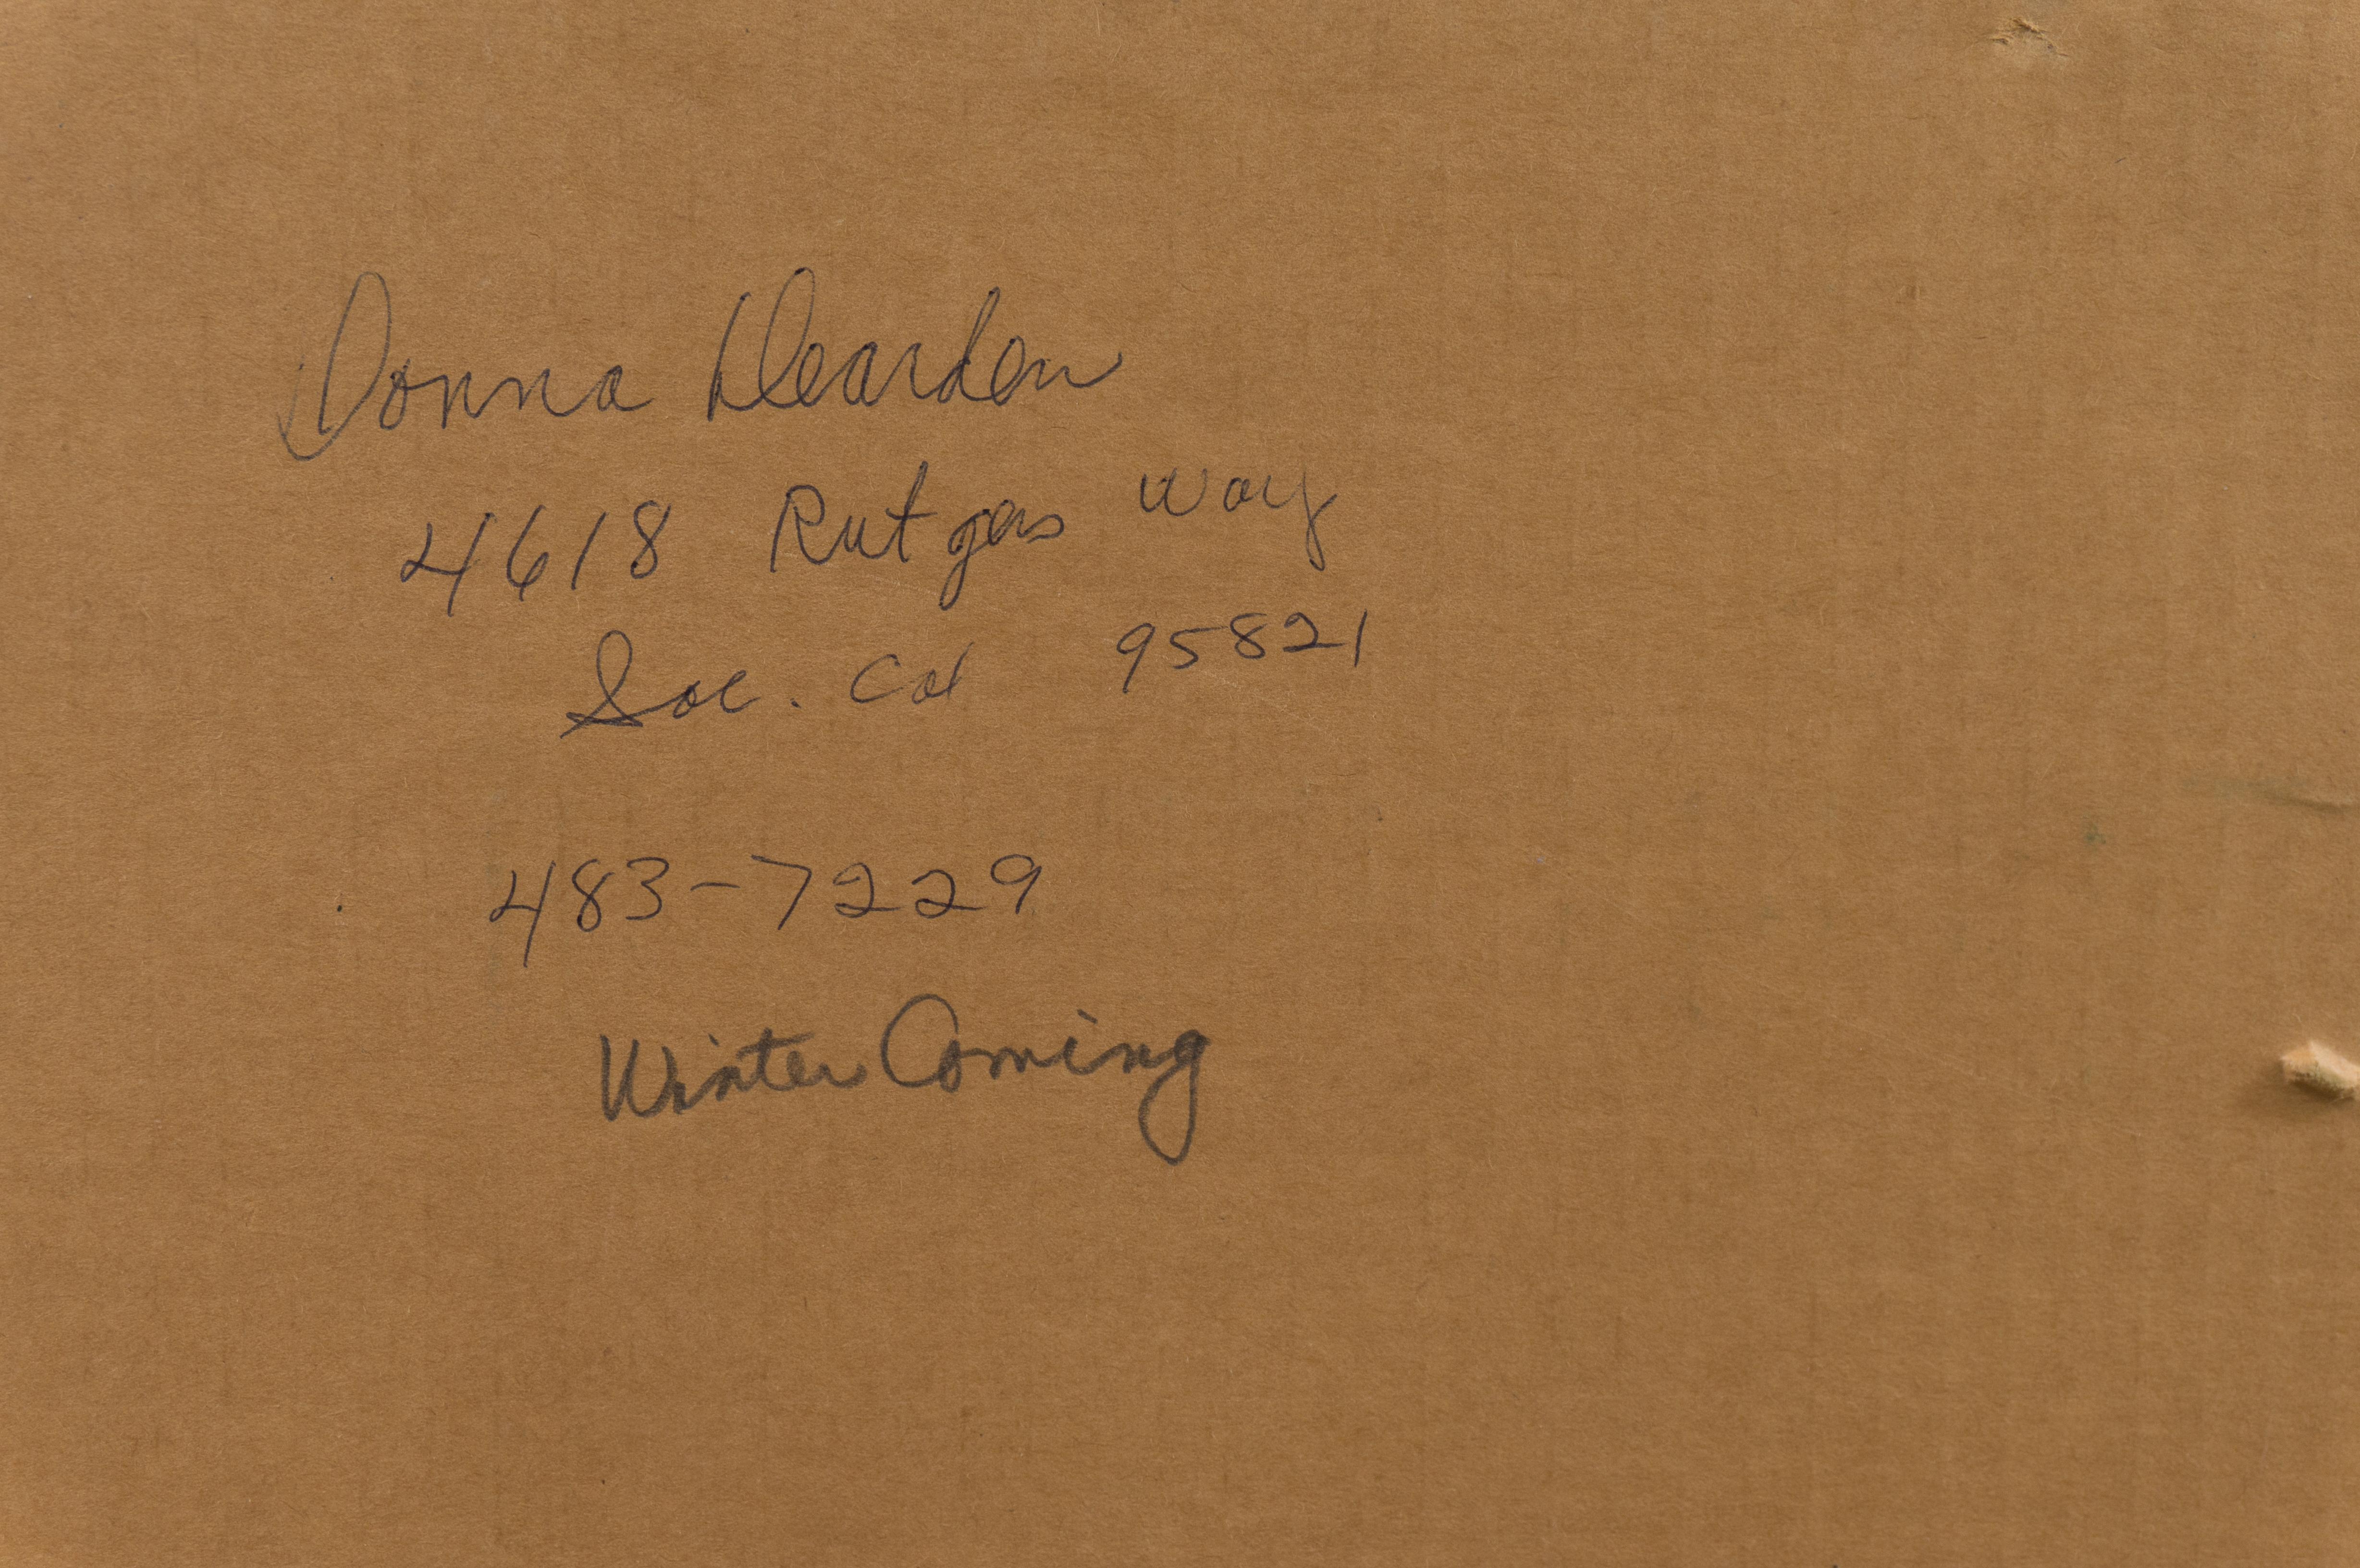 Donna Dearden
4618 Rutgers Way
Sac. Cal 95821
483-7229
Winter Coming